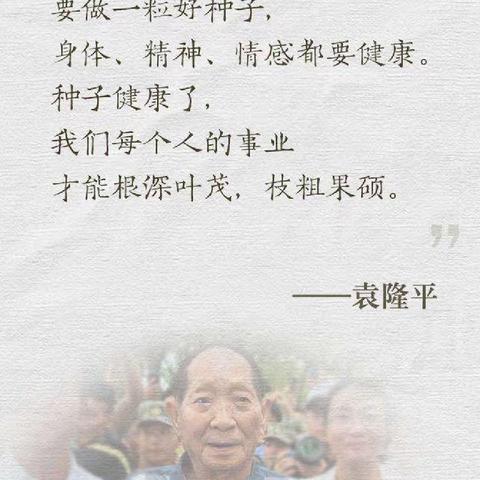 要做一粒好种子，
身体、精神、情感都要健康。
种子健康了，
我们每个人的事业
才能根深叶茂，枝粗果硕。
”
——袁隆平